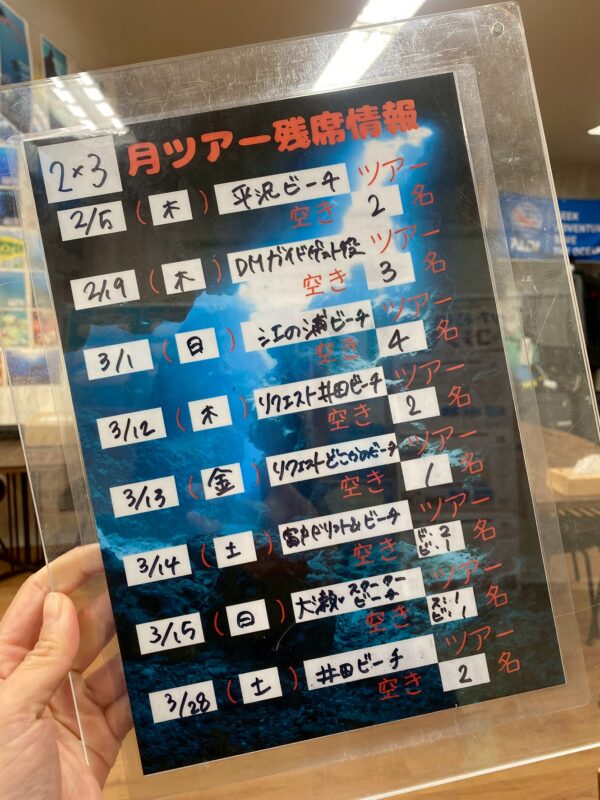 2*3 月ツアー残席情報
2/5 (木) 平沢ビーチ ツアー
空き 2 名
2/19 (木) DMガイドゲット役 ツアー
空き 3 名
3/1 (日) 江の浦ビーチ ツアー
空き 4 名
3/12 (木) リクエスト井田ビーチ ツアー
空き 2 名
3/13 (金) リクエストどこかのビーチ ツアー
空き 1 名
3/14 (土) 富戸ドリフト&ビーチ ツアー
空き ド:2 ビ:1 名
3/15 (日) 大瀬・スターター ビーチ ツアー
空き ス:1 ビ:1 名
3/28 (土) 井田ビーチ ツアー
空き 2 名
PADI